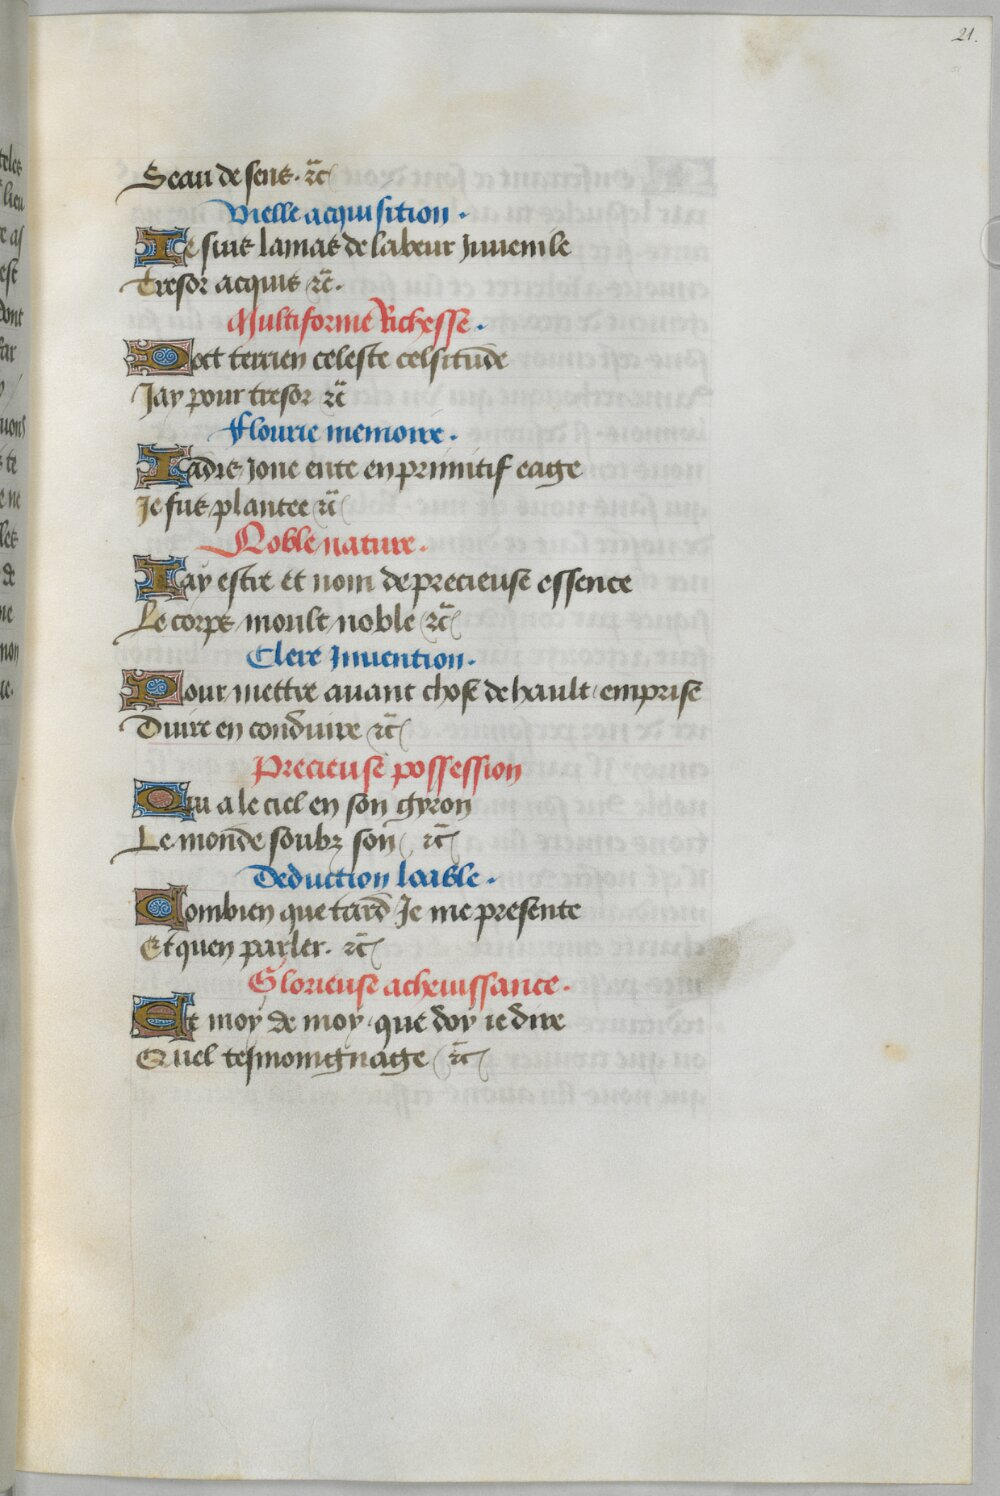 21.
Sceau de sens. &c
Vielle acquisition.
Ie suis lamas de labeur Juuenile
Tresor acquis &c.
Multiforme Richesse.
Doct terrien celeste celsitude
Jay pour tresor &c
Flourie memoire.
Iadis Jone ente en primitif eage
Je fus plantee &c
Noble nature.
Iay estre et nom de precieuse essence
Le corps moult noble &c
Clere Jnuention.
Pour mettre auant chose de hault emprise
Duire en conduire &c
Precieuse possession
Qui a le ciel en son gyron
Le monde soubz son &c
Deduction loable.
Combien que tard Je me presente
Et quen parler. &c
Glorieuse acheuissance.
Et moy de moy que doy ie dire
Quel tesmoingnage &c